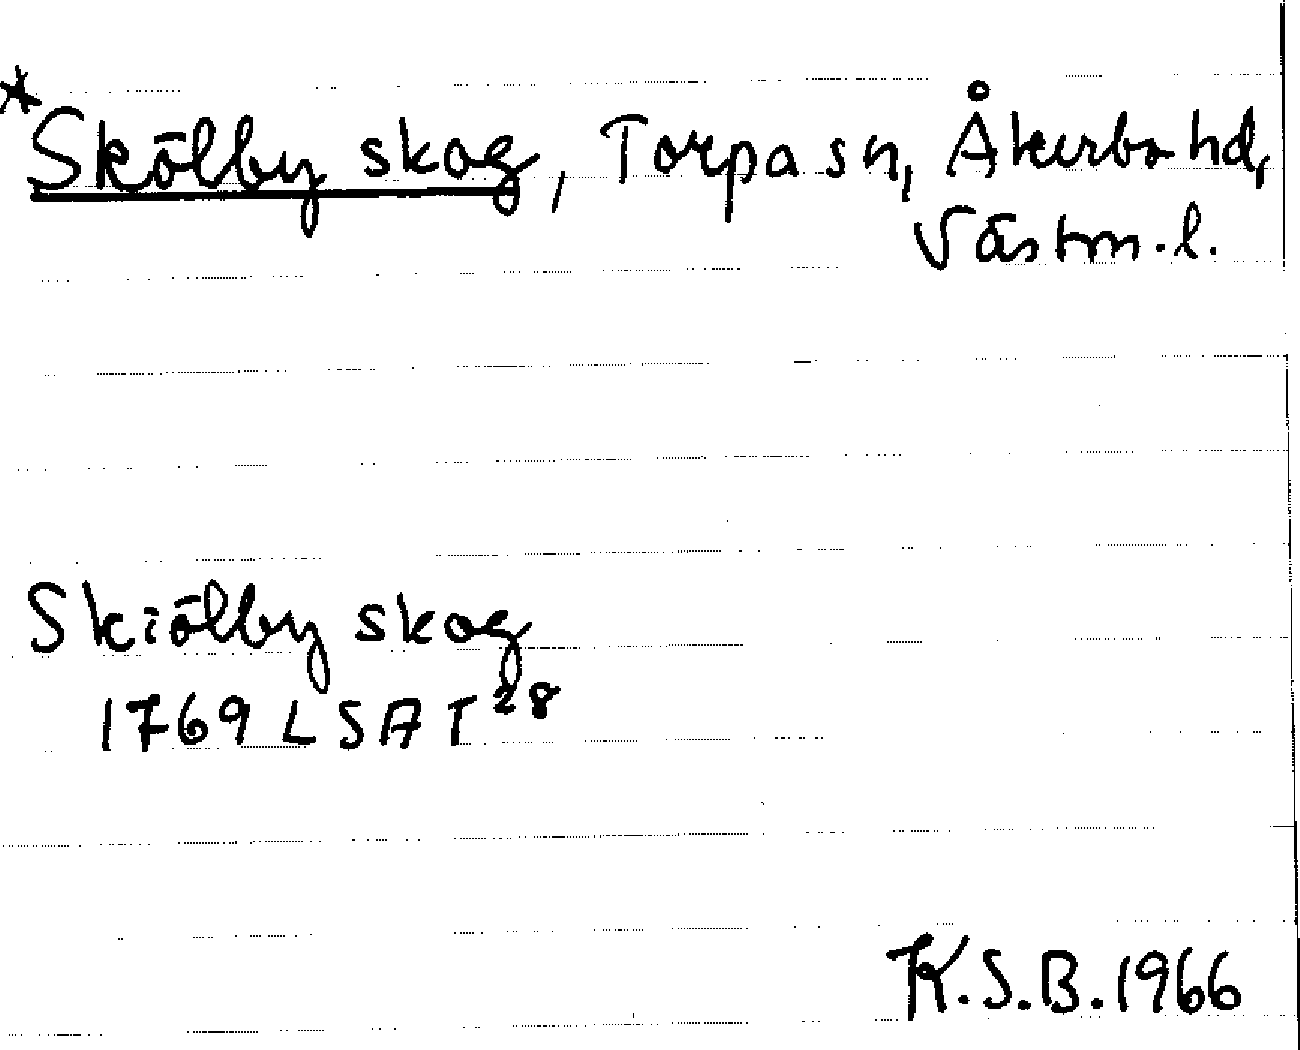 *Skölby skog, Torpa sn, Åkerbo hd,
Västm. l.
Skiölby skog
1769 LSA T 28
K.S.B. 1966